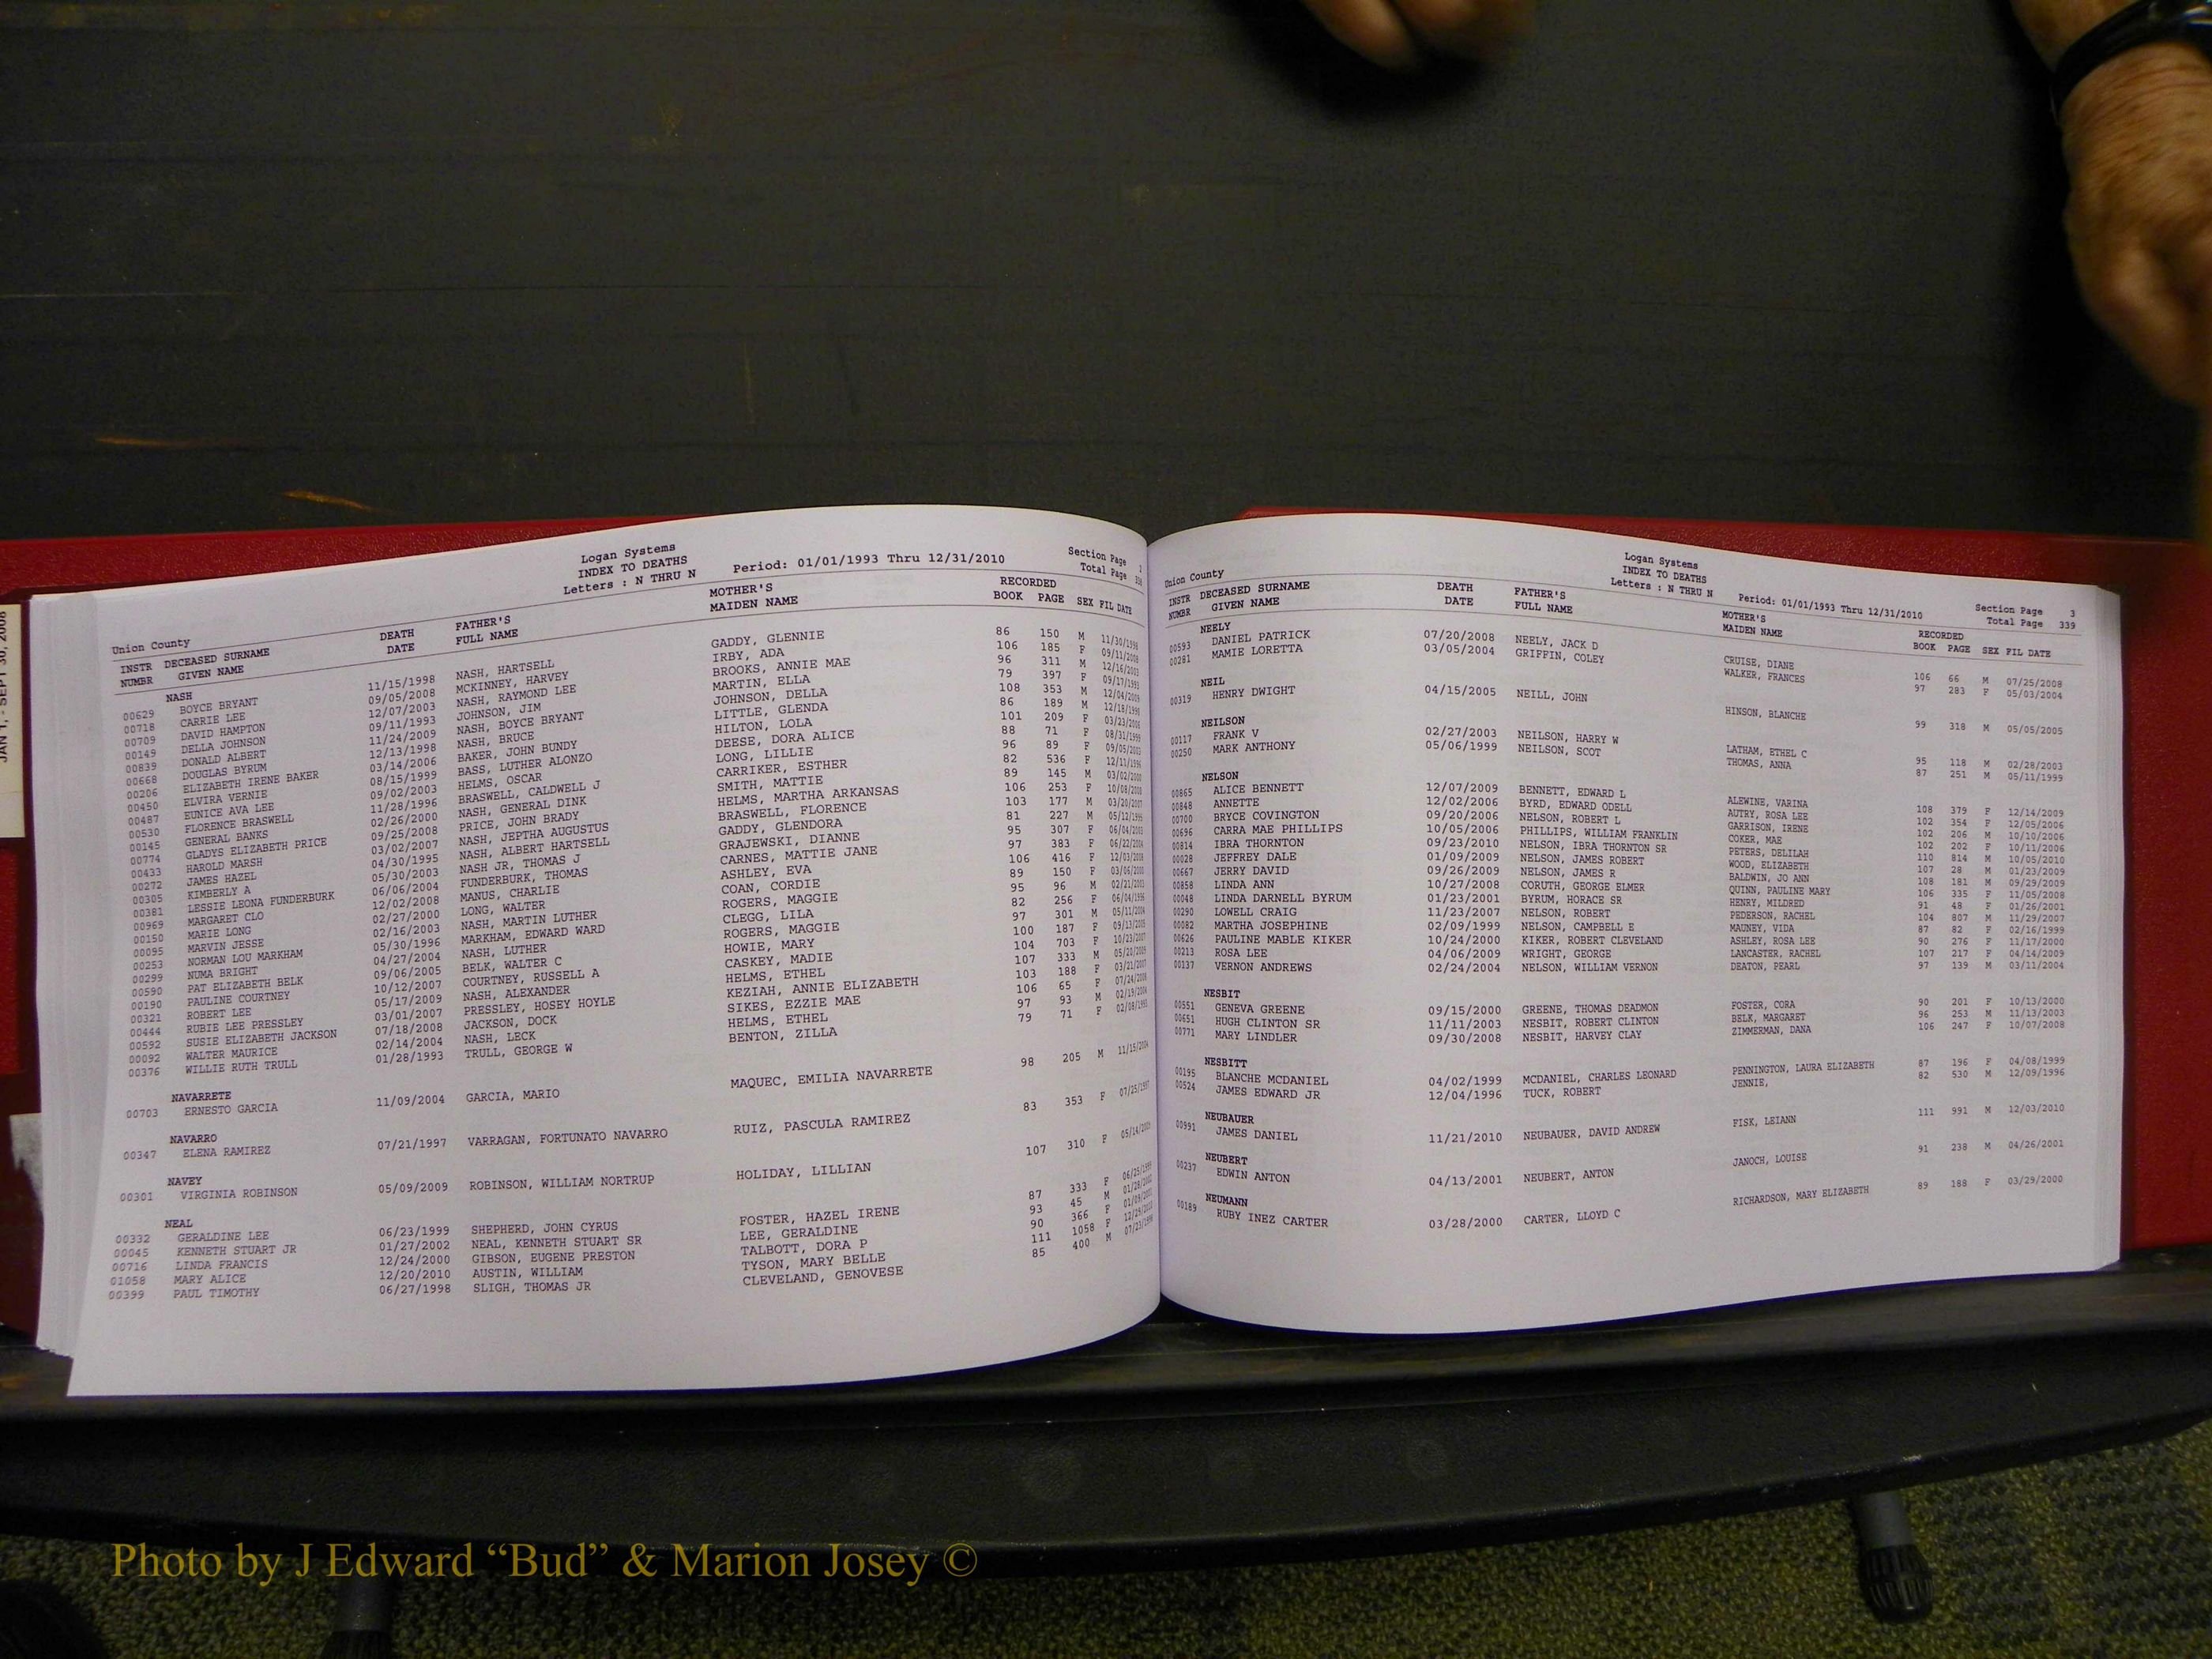 JAN 1, - SEPT 30, 2008
Logan Systems
INDEX TO DEATHS
Letters : N THRU N Period: 01/01/1993 Thru 12/31/2010
Section Page 2
Total Page 338
Union County
INSTR DECEASED SURNAME DEATH FATHER'S MOTHER'S RECORDED
NUMBR GIVEN NAME DATE FULL NAME MAIDEN NAME BOOK PAGE SEX FIL DATE
NASH
00629 BOYCE BRYANT 11/15/1998 NASH, HARTSELL GADDY, GLENNIE 86 150 M 11/30/1998
00718 CARRIE LEE 09/05/2008 MCKINNEY, HARVEY IRBY, ADA 106 185 F 09/11/2008
00709 DAVID HAMPTON 12/07/2003 NASH, RAYMOND LEE BROOKS, ANNIE MAE 96 311 M 12/16/2003
00149 DELLA JOHNSON 09/11/1993 JOHNSON, JIM MARTIN, ELLA 79 397 F 09/17/1993
00839 DONALD ALBERT 11/24/2009 NASH, BOYCE BRYANT JOHNSON, DELLA 108 353 M 12/04/2009
00668 DOUGLAS BYRUM 12/13/1998 NASH, BRUCE LITTLE, GLENDA 86 189 M 12/18/1998
00206 ELIZABETH IRENE BAKER 03/14/2006 BAKER, JOHN BUNDY HILTON, LOLA 101 209 F 03/23/2006
00450 ELVIRA VERNIE 08/15/1999 BASS, LUTHER ALONZO DEESE, DORA ALICE 88 71 F 08/31/1999
00487 EUNICE AVA LEE 09/02/2003 HELMS, OSCAR LONG, LILLIE 96 89 F 09/05/2003
00530 FLORENCE BRASWELL 11/28/1996 BRASWELL, CALDWELL J CARRIKER, ESTHER 82 536 F 12/11/1996
00145 GENERAL BANKS 02/26/2000 NASH, GENERAL DINK SMITH, MATTIE 89 145 M 03/02/2000
00774 GLADYS ELIZABETH PRICE 09/25/2008 PRICE, JOHN BRADY HELMS, MARTHA ARKANSAS 106 253 F 10/08/2008
00433 HAROLD MARSH 03/02/2007 NASH, JEPTHA AUGUSTUS BRASWELL, FLORENCE 103 177 M 03/20/2007
00272 JAMES HAZEL 04/30/1995 NASH, ALBERT HARTSELL GADDY, GLENDORA 81 227 M 05/12/1995
00305 KIMBERLY A 05/30/2003 NASH JR, THOMAS J GRAJEWSKI, DIANNE 95 307 F 06/04/2003
00381 LESSIE LEONA FUNDERBURK 06/06/2004 FUNDERBURK, THOMAS CARNES, MATTIE JANE 97 383 F 06/22/2004
00969 MARGARET CLO 12/02/2008 MANUS, CHARLIE ASHLEY, EVA 106 416 F 12/03/2008
00150 MARIE LONG 02/27/2000 LONG, WALTER COAN, CORDIE 89 150 F 03/06/2000
00095 MARVIN JESSE 02/16/2003 NASH, MARTIN LUTHER ROGERS, MAGGIE 95 96 M 02/21/2003
00253 NORMAN LOU MARKHAM 05/30/1996 MARKHAM, EDWARD WARD CLEGG, LILA 82 256 F 06/04/1996
00299 NUMA BRIGHT 04/27/2004 NASH, LUTHER ROGERS, MAGGIE 97 301 M 05/11/2004
00590 PAT ELIZABETH BELK 09/06/2005 BELK, WALTER C HOWIE, MARY 100 187 F 09/13/2005
00190 PAULINE COURTNEY 10/12/2007 COURTNEY, RUSSELL A CASKEY, MADIE 104 703 F 10/23/2007
00321 ROBERT LEE 05/17/2009 NASH, ALEXANDER HELMS, ETHEL 107 333 M 05/20/2009
00444 RUBIE LEE PRESSLEY 03/01/2007 PRESSLEY, HOSEY HOYLE KEZIAH, ANNIE ELIZABETH 103 188 F 03/21/2007
00592 SUSIE ELIZABETH JACKSON 07/18/2008 JACKSON, DOCK SIKES, EZZIE MAE 106 65 F 07/24/2008
00092 WALTER MAURICE 02/14/2004 NASH, LECK HELMS, ETHEL 97 93 M 02/19/2004
00376 WILLIE RUTH TRULL 01/28/1993 TRULL, GEORGE W BENTON, ZILLA 79 71 F 02/08/1993
NAVARRETE
00703 ERNESTO GARCIA 11/09/2004 GARCIA, MARIO MAQUEC, EMILIA NAVARRETE 98 205 M 11/15/2004
NAVARRO
00347 ELENA RAMIREZ 07/21/1997 VARRAGAN, FORTUNATO NAVARRO RUIZ, PASCULA RAMIREZ 83 353 F 07/25/1997
NAVEY
00301 VIRGINIA ROBINSON 05/09/2009 ROBINSON, WILLIAM NORTRUP HOLIDAY, LILLIAN 107 310 F 05/14/2009
NEAL
00332 GERALDINE LEE 06/23/1999 SHEPHERD, JOHN CYRUS FOSTER, HAZEL IRENE 87 333 F 06/25/1999
00045 KENNETH STUART JR 01/27/2002 NEAL, KENNETH STUART SR LEE, GERALDINE 93 45 M 01/28/2002
00716 LINDA FRANCIS 12/24/2000 GIBSON, EUGENE PRESTON TALBOTT, DORA P 90 366 F 01/09/2001
01058 MARY ALICE 12/20/2010 AUSTIN, WILLIAM TYSON, MARY BELLE 111 1058 F 12/29/2010
00399 PAUL TIMOTHY 06/27/1998 SLIGH, THOMAS JR CLEVELAND, GENOVESE 85 400 M 07/23/1998
Logan Systems
INDEX TO DEATHS
Letters : N THRU N Period: 01/01/1993 Thru 12/31/2010
Section Page 3
Total Page 339
Union County
INSTR DECEASED SURNAME DEATH FATHER'S MOTHER'S RECORDED
NUMBR GIVEN NAME DATE FULL NAME MAIDEN NAME BOOK PAGE SEX FIL DATE
NEELY
00593 DANIEL PATRICK 07/20/2008 NEELY, JACK D CRUISE, DIANE 106 66 M 07/25/2008
00281 MAMIE LORETTA 03/05/2004 GRIFFIN, COLEY WALKER, FRANCES 97 283 F 05/03/2004
NEIL
00319 HENRY DWIGHT 04/15/2005 NEILL, JOHN HINSON, BLANCHE 99 318 M 05/05/2005
NEILSON
00117 FRANK V 02/27/2003 NEILSON, HARRY W LATHAM, ETHEL C 95 118 M 02/28/2003
00250 MARK ANTHONY 05/06/1999 NEILSON, SCOT THOMAS, ANNA 87 251 M 05/11/1999
NELSON
00865 ALICE BENNETT 12/07/2009 BENNETT, EDWARD L ALEWINE, VARINA 108 379 F 12/14/2009
00848 ANNETTE 12/02/2006 BYRD, EDWARD ODELL AUTRY, ROSA LEE 102 354 F 12/05/2006
00700 BRYCE COVINGTON 09/20/2006 NELSON, ROBERT L GARRISON, IRENE 102 206 M 10/10/2006
00696 CARRA MAE PHILLIPS 10/05/2006 PHILLIPS, WILLIAM FRANKLIN COKER, MAE 102 202 F 10/11/2006
00814 IBRA THORNTON 09/23/2010 NELSON, IBRA THORNTON SR PETERS, DELILAH 110 814 M 10/05/2010
00028 JEFFREY DALE 01/09/2009 NELSON, JAMES ROBERT WOOD, ELIZABETH 107 28 M 01/23/2009
00667 JERRY DAVID 09/26/2009 NELSON, JAMES R BALDWIN, JO ANN 108 181 M 09/29/2009
00858 LINDA ANN 10/27/2008 CORUTH, GEORGE ELMER QUINN, PAULINE MARY 106 335 F 11/05/2008
00048 LINDA DARNELL BYRUM 01/23/2001 BYRUM, HORACE SR HENRY, MILDRED 91 48 F 01/26/2001
00290 LOWELL CRAIG 11/23/2007 NELSON, ROBERT PEDERSON, RACHEL 104 807 M 11/29/2007
00082 MARTHA JOSEPHINE 02/09/1999 NELSON, CAMPBELL E MAUNEY, VIDA 87 82 F 02/16/1999
00626 PAULINE MABLE KIKER 10/24/2000 KIKER, ROBERT CLEVELAND ASHLEY, ROSA LEE 90 276 F 11/17/2000
00213 ROSA LEE 04/06/2009 WRIGHT, GEORGE LANCASTER, RACHEL 107 217 F 04/14/2009
00137 VERNON ANDREWS 02/24/2004 NELSON, WILLIAM VERNON DEATON, PEARL 97 139 M 03/11/2004
NESBIT
00551 GENEVA GREENE 09/15/2000 GREENE, THOMAS DEADMON FOSTER, CORA 90 201 F 10/13/2000
00651 HUGH CLINTON SR 11/11/2003 NESBIT, ROBERT CLINTON BELK, MARGARET 96 253 M 11/13/2003
00771 MARY LINDLER 09/30/2008 NESBIT, HARVEY CLAY ZIMMERMAN, DANA 106 247 F 10/07/2008
NESBITT
00195 BLANCHE MCDANIEL 04/02/1999 MCDANIEL, CHARLES LEONARD PENNINGTON, LAURA ELIZABETH 87 196 F 04/08/1999
00524 JAMES EDWARD JR 12/04/1996 TUCK, ROBERT JENNIE, 82 530 M 12/09/1996
NEUBAUER
00991 JAMES DANIEL 11/21/2010 NEUBAUER, DAVID ANDREW FISK, LEIANN 111 991 M 12/03/2010
NEUBERT
00237 EDWIN ANTON 04/13/2001 NEUBERT, ANTON JANOCH, LOUISE 91 238 M 04/26/2001
NEUMANN
00189 RUBY INEZ CARTER 03/28/2000 CARTER, LLOYD C RICHARDSON, MARY ELIZABETH 89 188 F 03/29/2000
Photo by J Edward “Bud” & Marion Josey ©